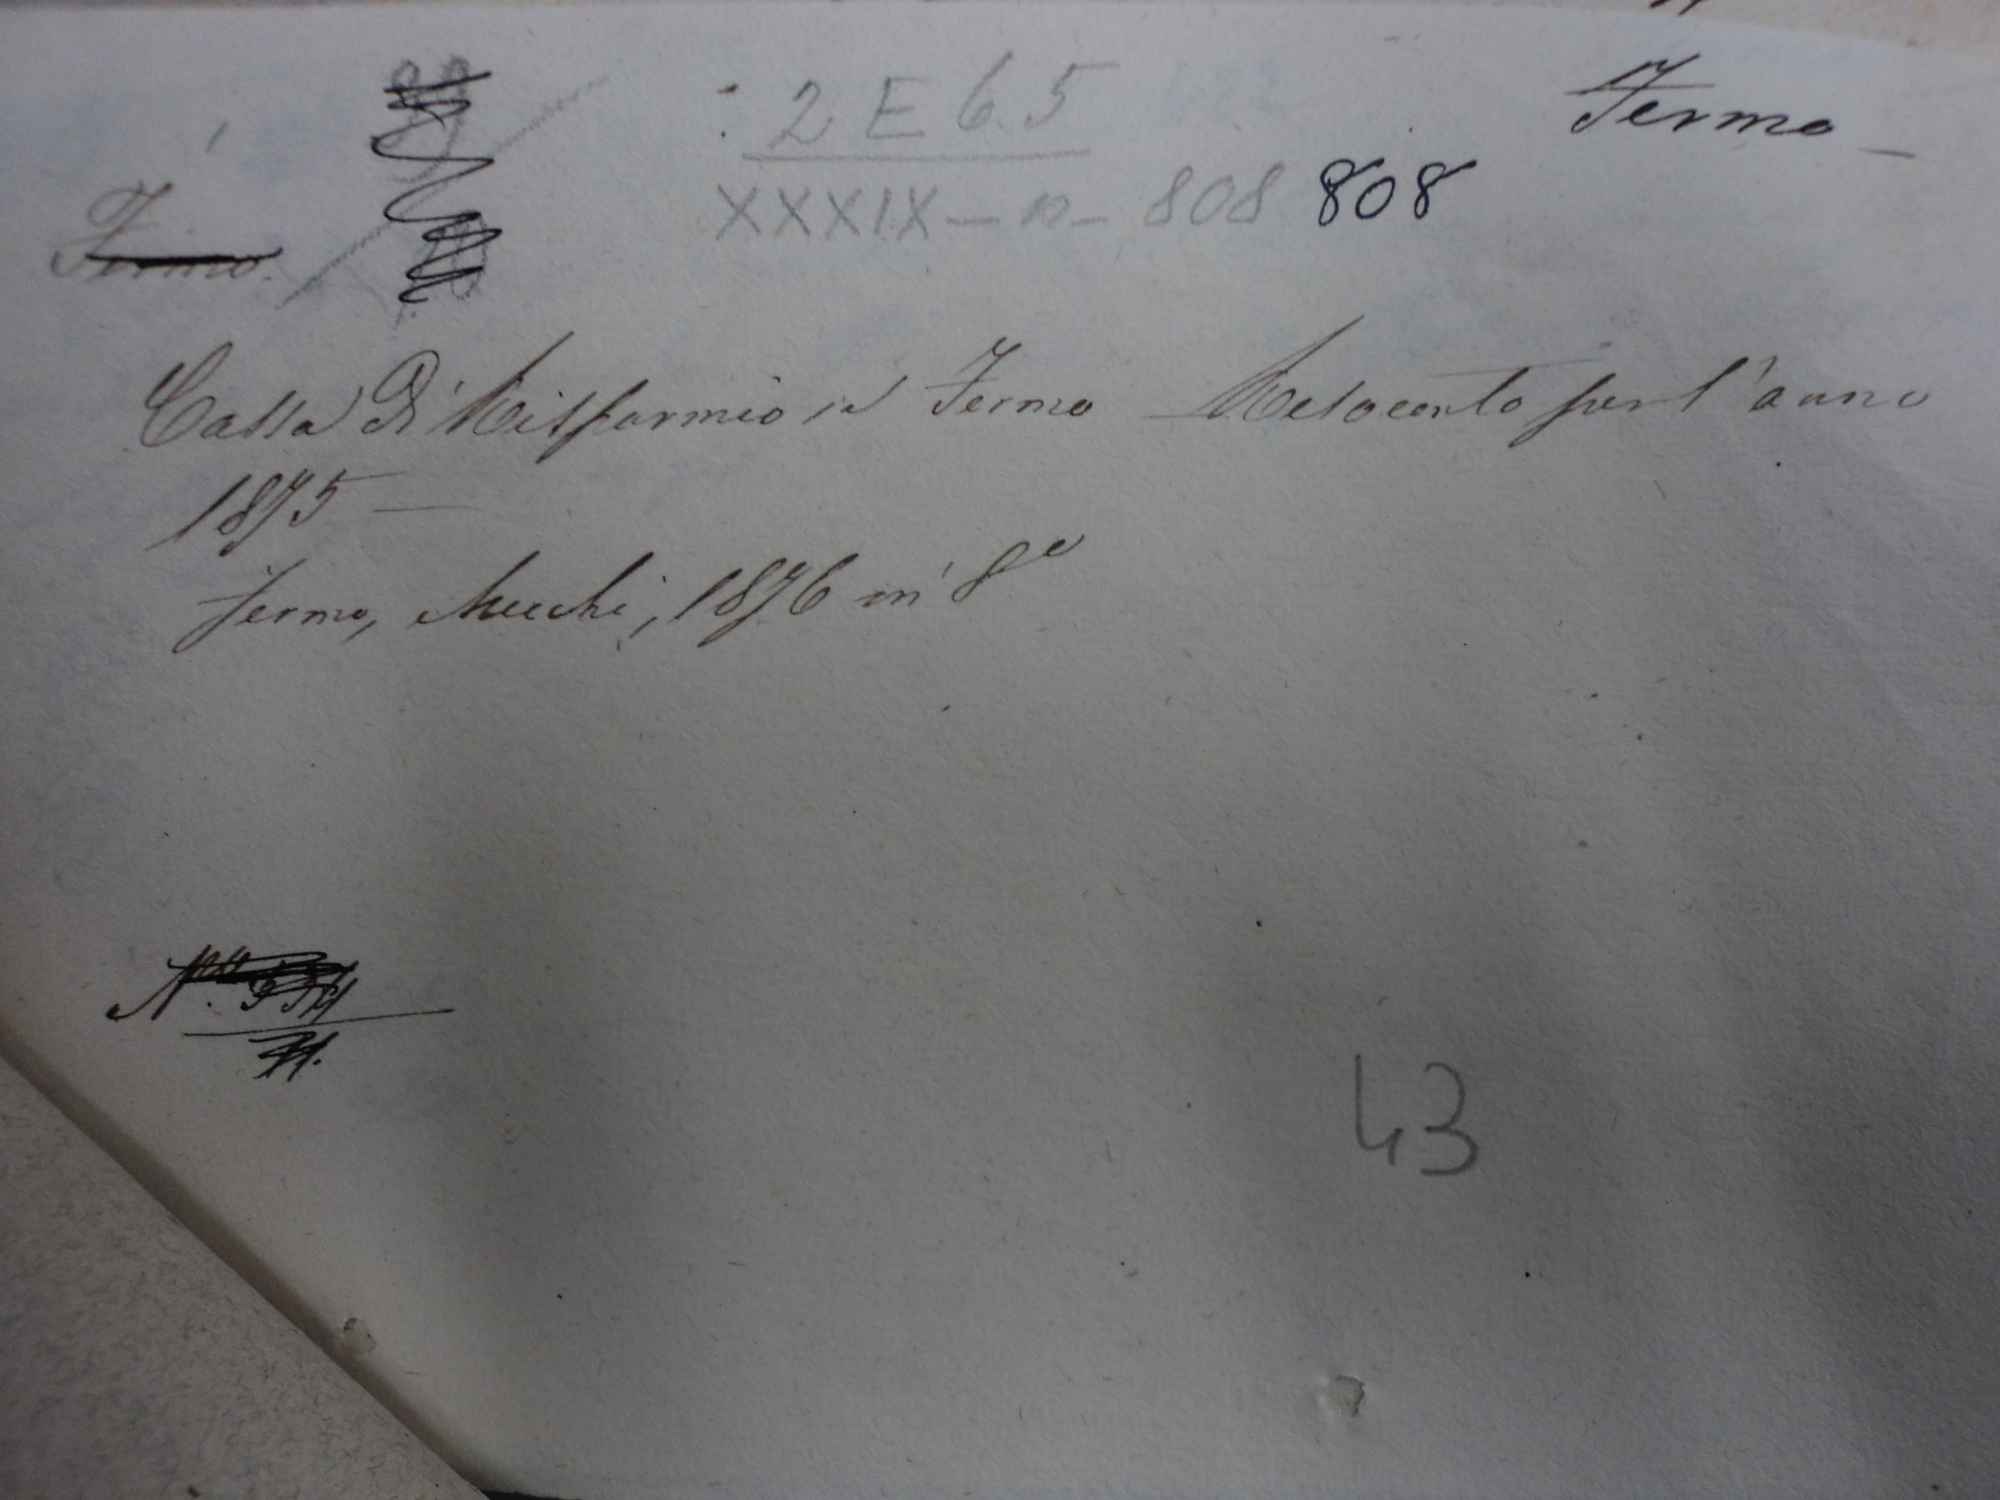 2 E 6.5
Fermo
XXXIX - n - 808 808
Fermo.
Cassa di Risparmio in Fermo - Resoconto per l'anno
1875 -
Fermo, Mecchi, 1876 in 8º
43